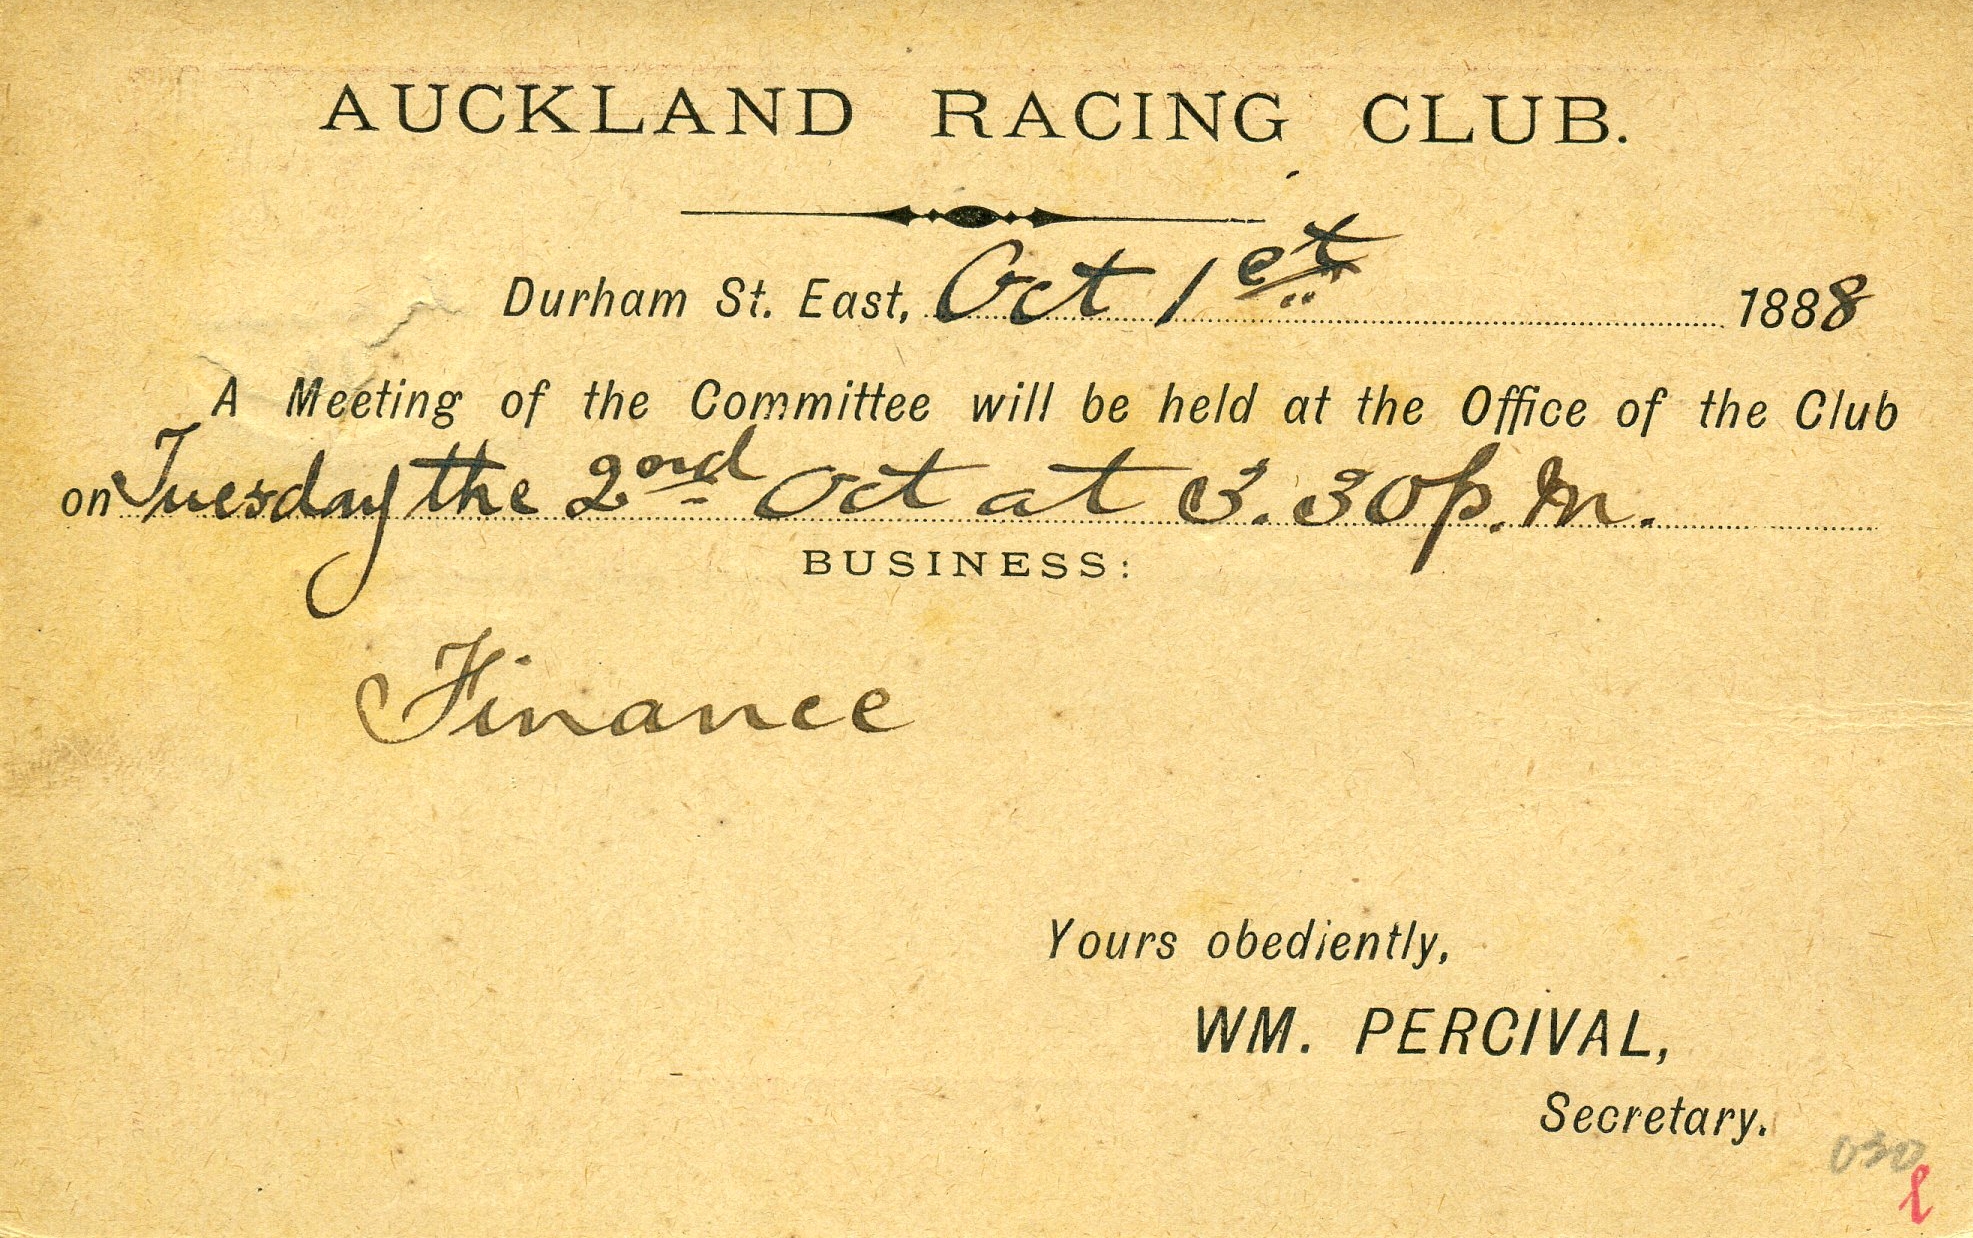 AUCKLAND RACING CLUB.
Durham St. East, Oct 1st 1888
A Meeting of the Committee will be held at the Office of the Club
on Tuesday the 2nd Oct at 3.30 p.m.
BUSINESS:
Finance
Yours obediently,
WM. PERCIVAL,
Secretary.
030